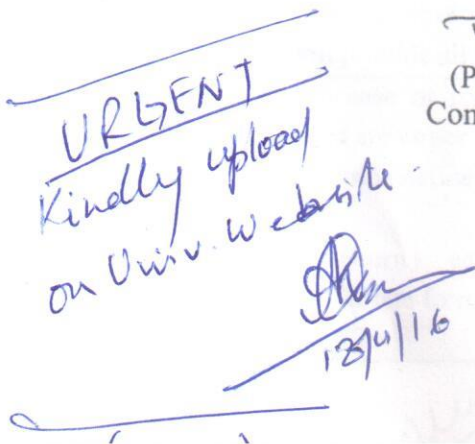 (P
Con
URGENT
Kindly upload
on Univ. Website.